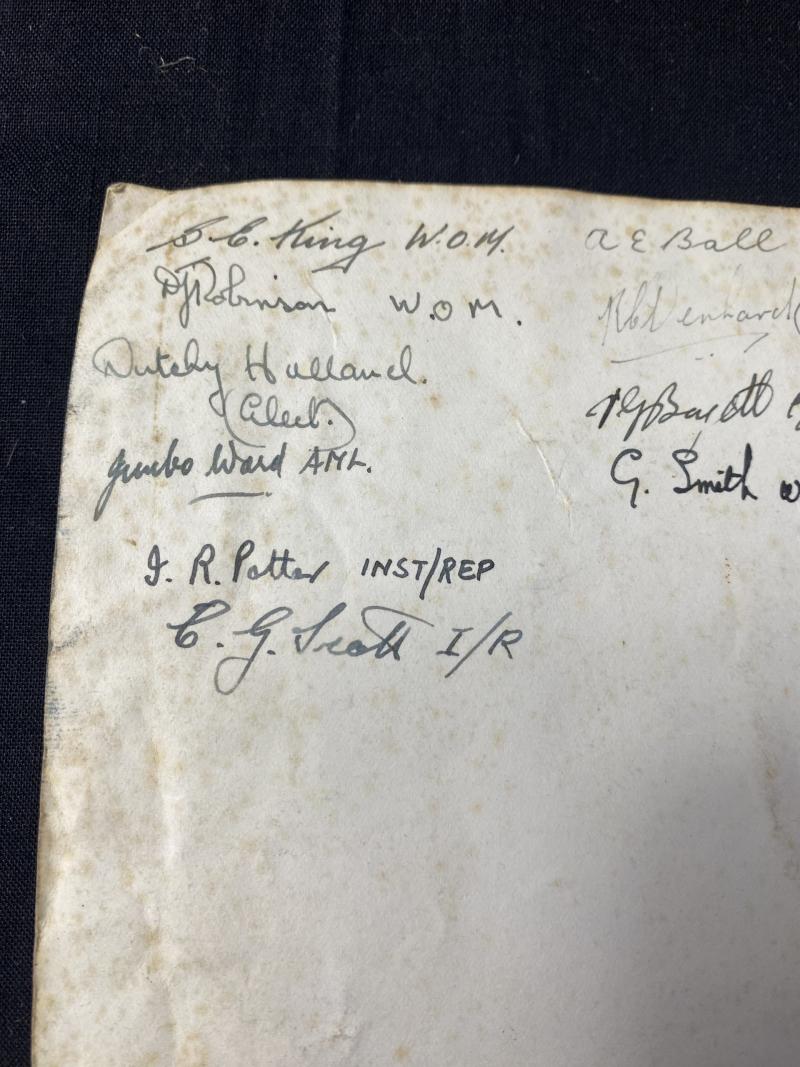 S. C. King W.O.M.
DJ Robinson W.O.M.
Dutchy Holland.
(Elect.)
Jumbo Ward AML.
I. R. Potter INST/REP
C. G. Scott I/R
A E Ball
G. Smith